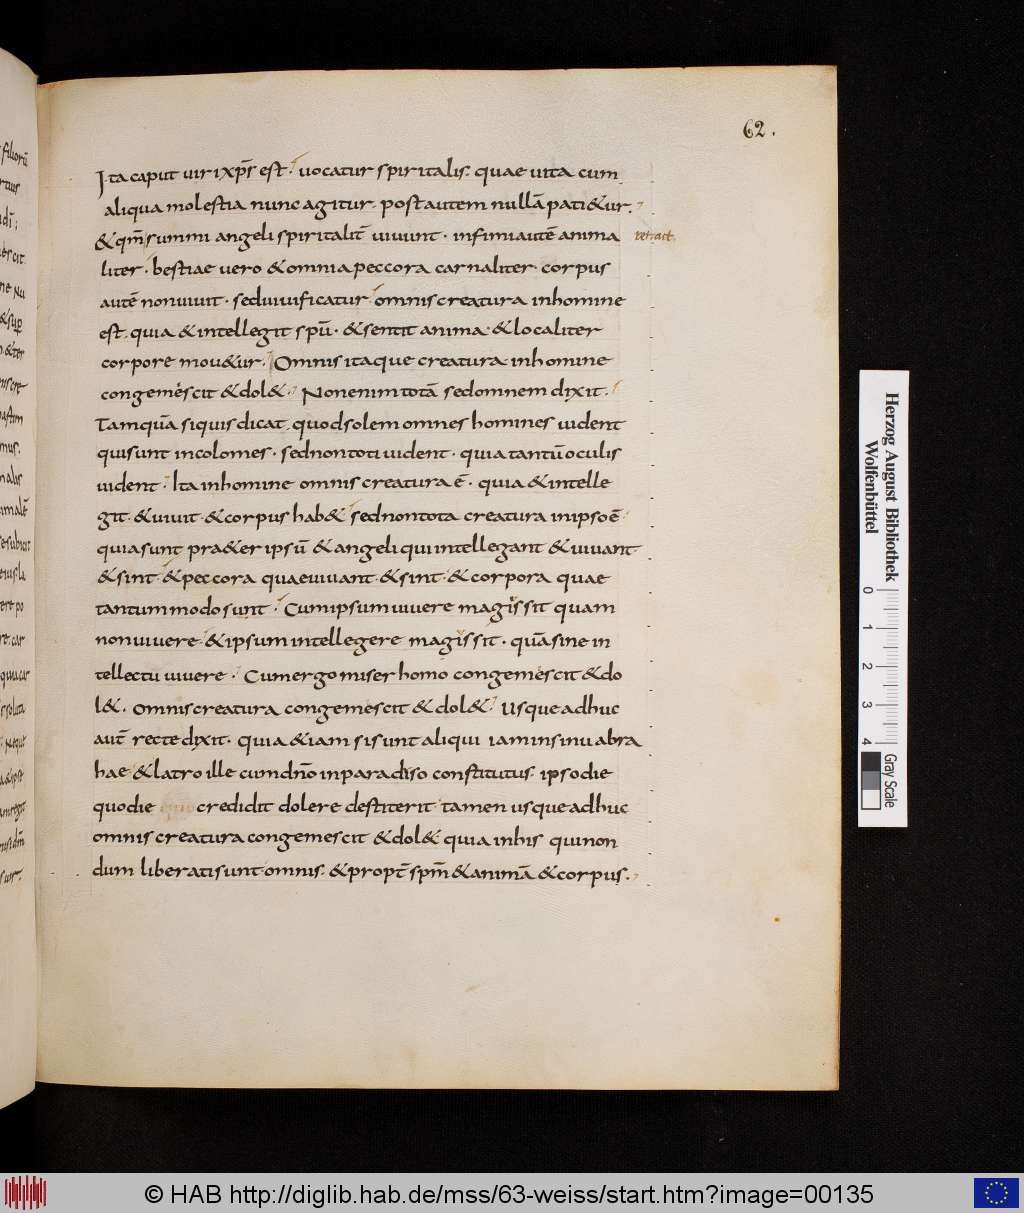 62.
Ita caput uiri xp̄s est. uocatur spiritalis. quae uita cum
aliqua molestia nunc agitur. post autem nullā pati&ur.
&qm̄ summi angeli spiritalit̄ uiuunt. infimi autē anima
ret. act.
liter. bestiae uero &omnia peccora carnaliter. corpus
autē non uiuit. sed uiuificatur omnis creatura in homine
est. quia &intellegit spū. &sentit anima &localiter
corpore mou&ur. Omnis itaque creatura in homine
congemescit &dol&. Non enim totā sed omnem dixit.
Tamquā si quis dicat. quod solem omnes homines uident
qui sunt incolomes. sed non toti uident. quia tantū oculis
uident. Ita in homine omnis creatura ē. quia &intelle
git. &uiuit. &corpus hab& sed non tota creatura in ipso ē
quia sunt pra&er ipsū &angeli qui intellegant &uiuant.
&sint. &peccora quae uiuant &sint. &corpora quae
tantummodo sunt. Cum ipsum uiuere magis sit quam
non uiuere. &ipsum intellegere magis sit. quā sine in
tellectu uiuere. Cum ergo miser homo congemescit &do
l&. Omnis creatura congemescit & dol&. Usque adhuc
aut̄ recte dixit. quia &iam si sunt aliqui iam in sinu abra
hae &latro ille cum dn̄o in paradiso constitutus. ipso die
quo die credidit dolere destiterit tamen usque adhuc
omnis creatura congemescit &dol& quia in his qui non
dum liberati sunt omnis. &propt̄ spm̄ &animā &corpus.
Herzog August Bibliothek
Wolfenbüttel
0 1 2 3 4
Gray Scale
© HAB http://diglib.hab.de/mss/63-weiss/start.htm?image=00135